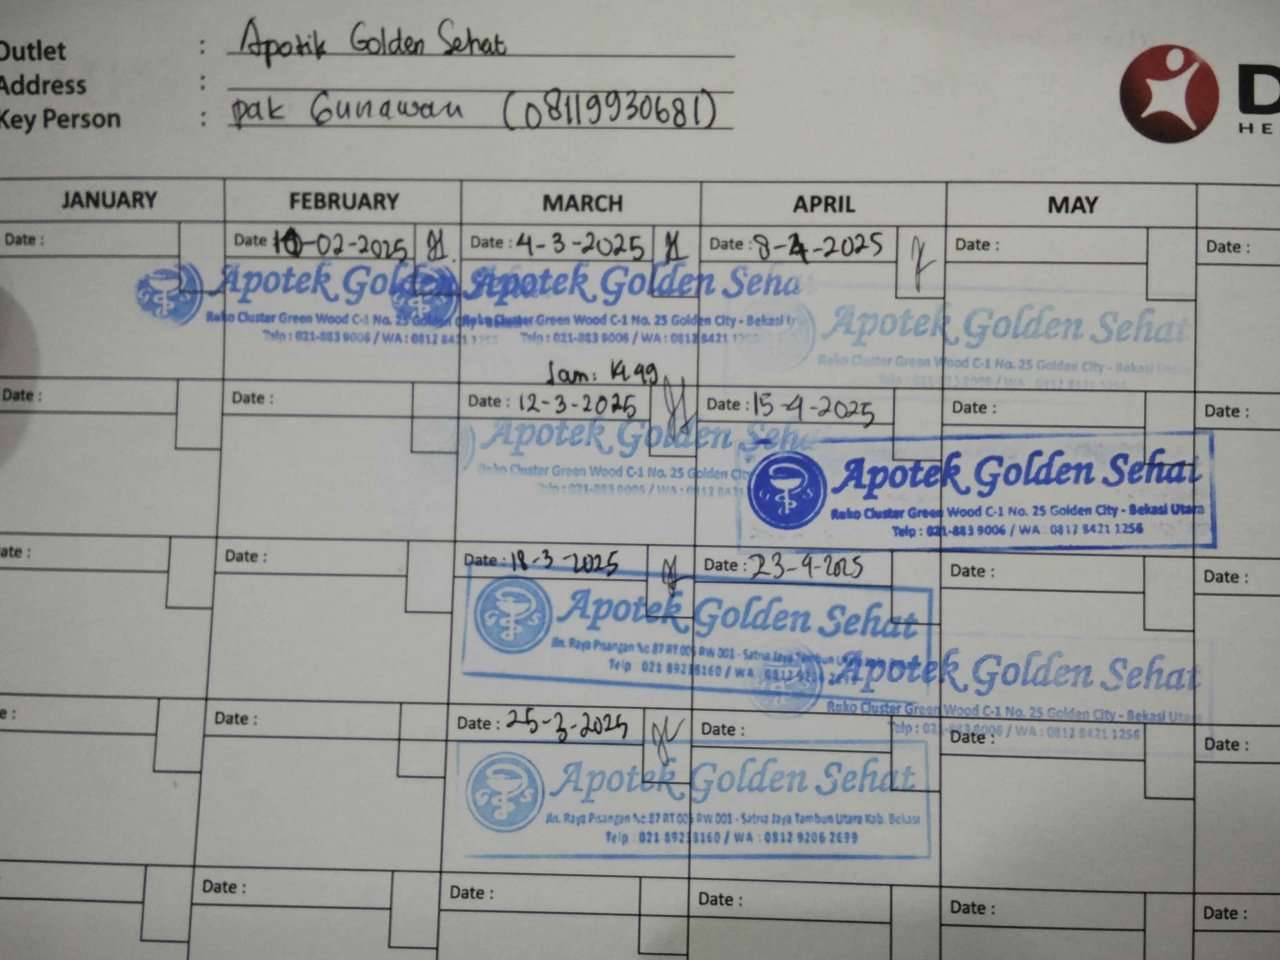 Outlet : Apotik Golden Sehat
Address :
Key Person : pak Gunawan (08119930681)
D
HE
JANUARY FEBRUARY MARCH APRIL MAY
Date : Date 10-02-2025 Date : 4-3-2025 Date : 8-4-2025 Date : Date :
Apotek Gol Apotek Golden Seha
Ruko Cluster Green Wood C-1 No. 25 Golden Ruko Cluster Green Wood C-1 No. 25 Golden City - Bekasi U
Telp : 021-883 9006 / WA : 0812 8421 Telp : 021-883 9006 / WA : 0812 8421
Apotek Golden Sehat
Ruko Cluster Green Wood C-1 No. 25 Golden City - Bekasi
Jam:
Date : Date : Date : 12-3-2025 Date : 15-4-2025 Date : Date :
Apotek Golden Seha
Ruko Cluster Green Wood C-1 No. 25 Golden City
Telp : 021-883 9006 / WA : 0812 8421
Apotek Golden Sehat
Ruko Cluster Green Wood C-1 No. 25 Golden City - Bekasi Utara
Telp : 021-883 9006 / WA : 0812 8421 1256
ate : Date : Date : 18-3-2025 Date : 23-4-2025 Date : Date :
Apotek Golden Sehat
Jln. Raya Pisangan No 87 RT 005 RW 001 - Satria Jaya Tambun Utara
Telp 021 89238160 / WA
Apotek Golden Sehat
Ruko Cluster Green Wood C-1 No. 25 Golden City - Bekasi Utara
9006 / WA : 0812 8421 1256
e : Date : Date : 25-3-2025 Date : Date : Date :
Apotek Golden Sehat
Jln. Raya Pisangan No 87 RT 005 RW 001 - Satria Jaya Tambun Utara Kab. Bekasi
Telp 021 89238160 / WA : 0812 9206 2699
Date : Date : Date : Date : Date :